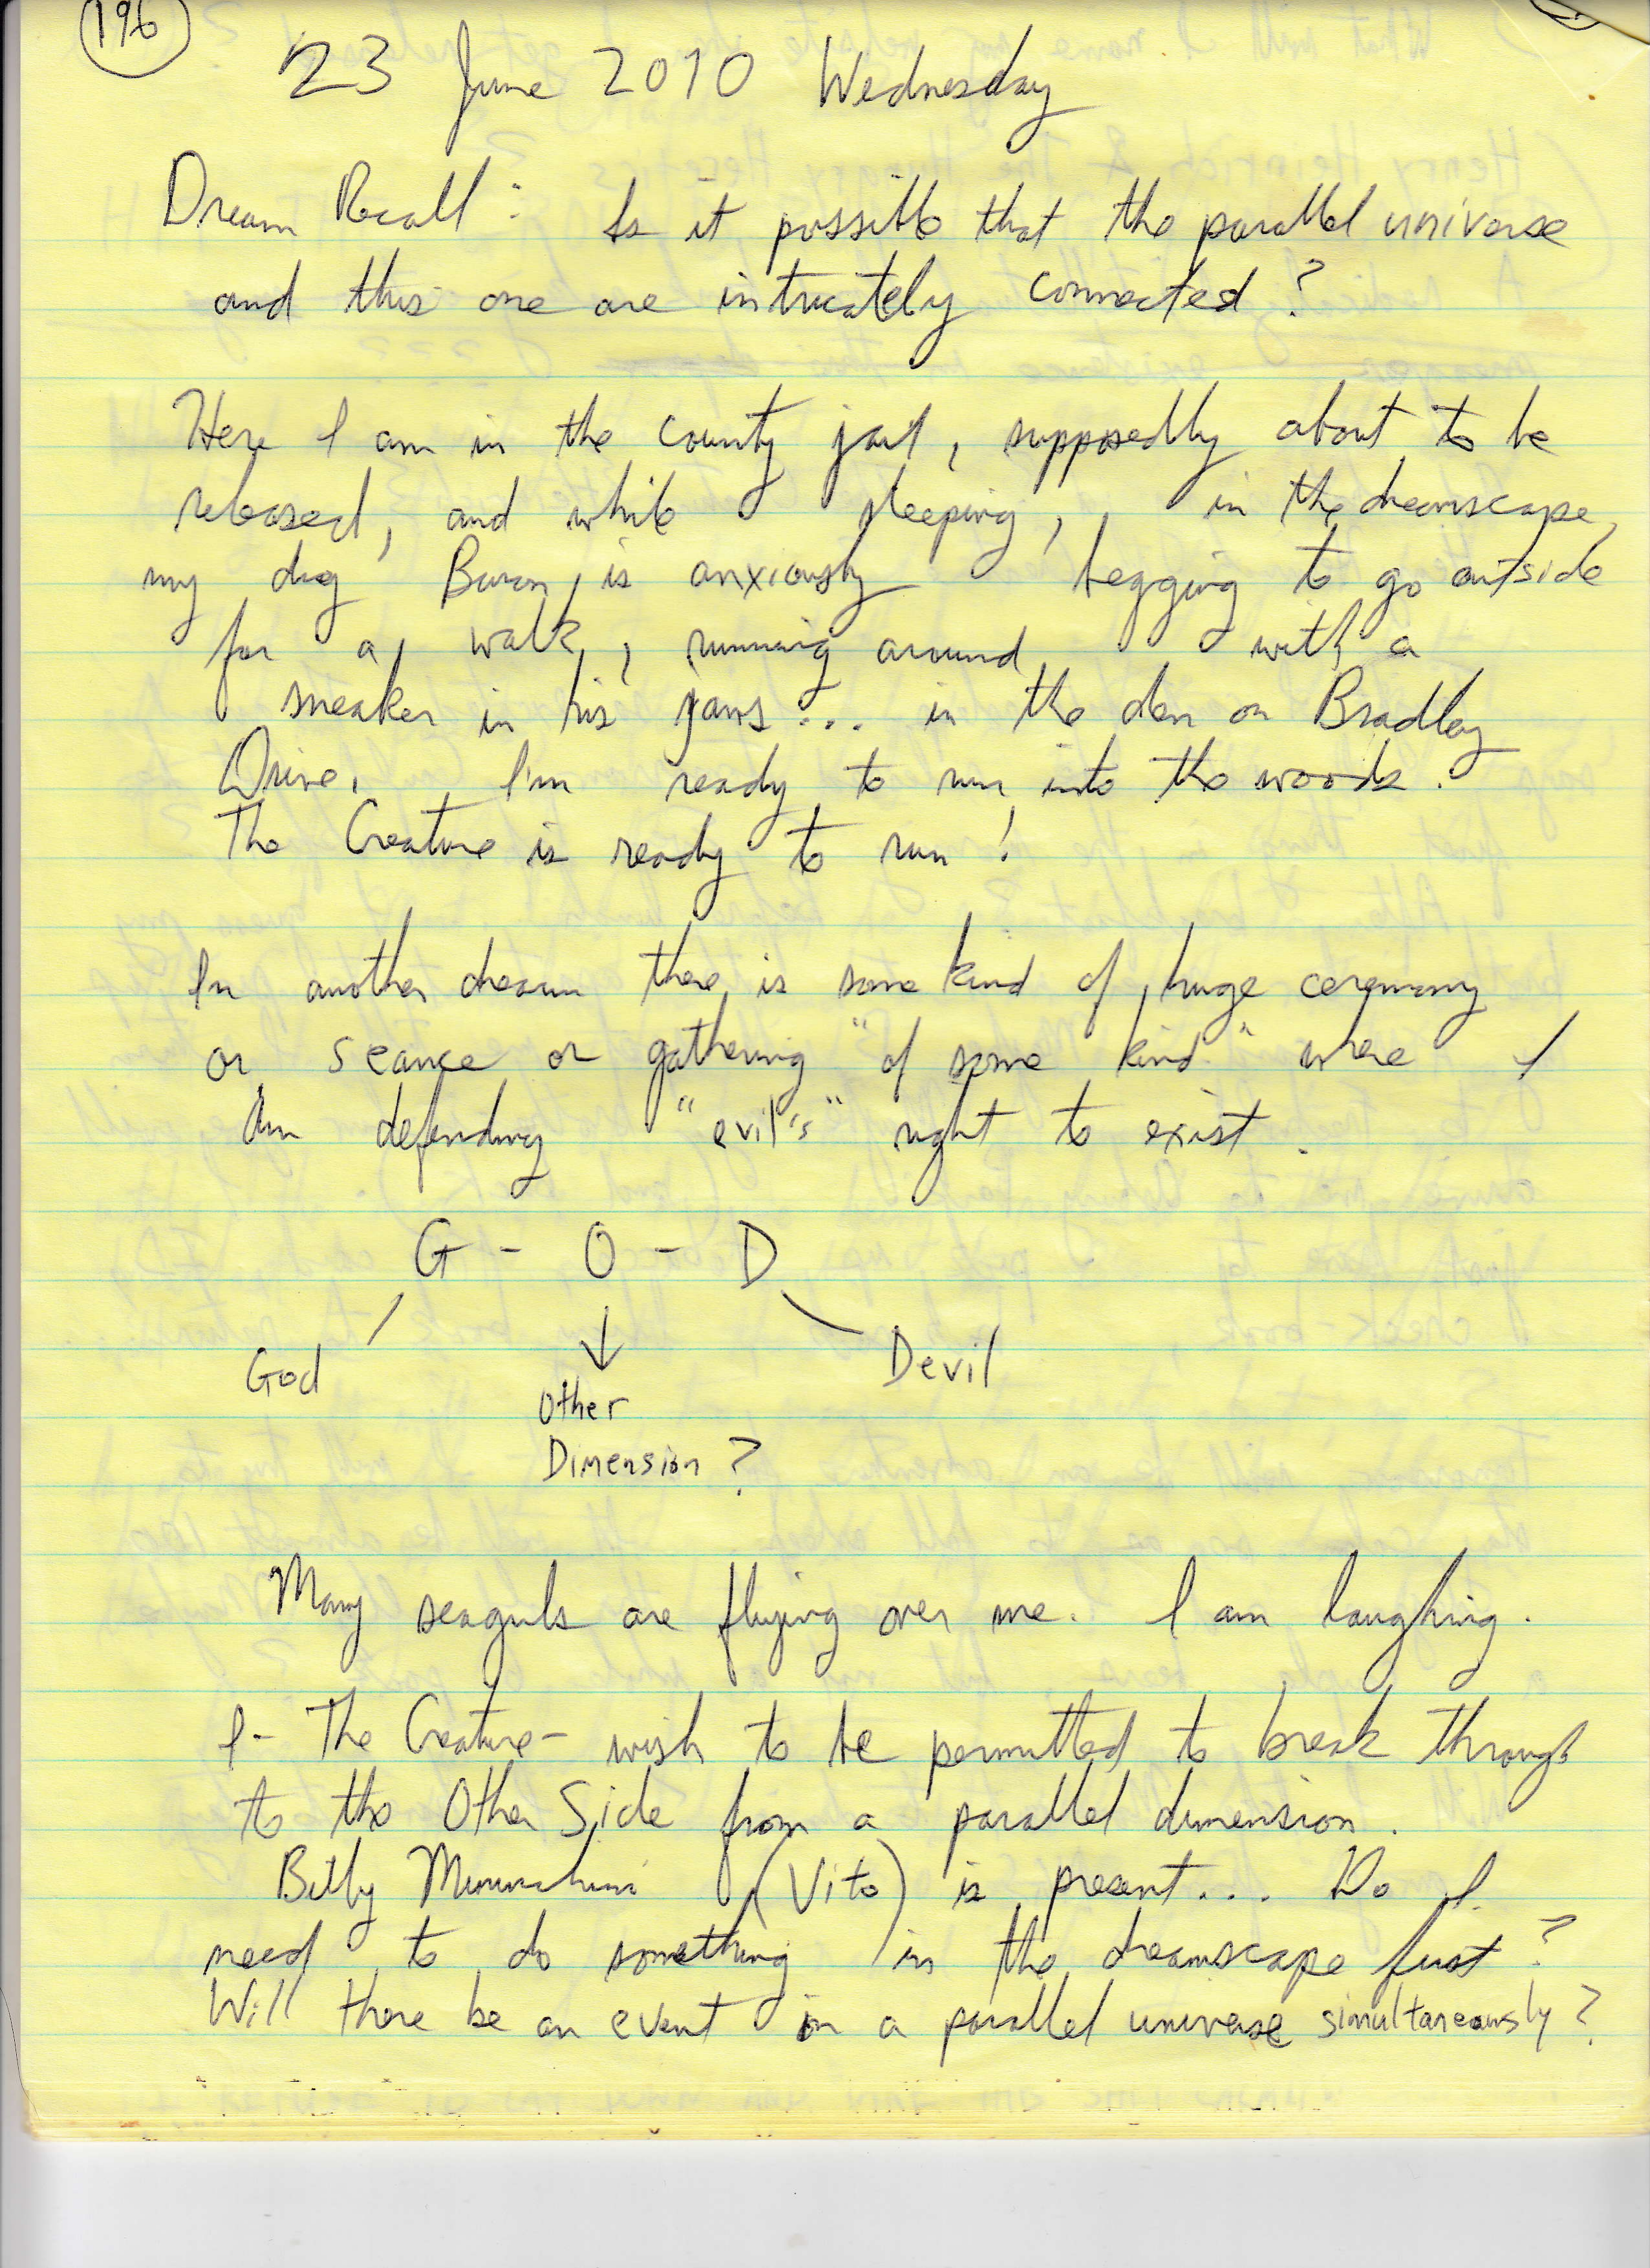 196
23 June 2010 Wednesday
Dream Recall: Is it possible that the parallel universe
and this one are intricately connected?
Here I am in the county jail, supposedly about to be
released, and while sleeping, in the dreamscape,
my dog Baron, is anxiously begging to go outside
for a walk, running around with a
sneaker in his jaws... in the den on Bradley
Drive. I'm ready to run into the woods.
The Creature is ready to run!
In another dream there is some kind of huge ceremony
or seance or gathering "of some kind" where I
Am defending "evil's" right to exist.
G - O - D
God
Devil
Other
Dimension?
Many seaguls are flying over me. I am laughing.
I - The Creature - wish to be permitted to break through
to the Other Side from a parallel dimension.
Billy (Vito) is present... Do I
need to do something in the dreamscape first?
Will there be an event in a parallel universe simultaneously?